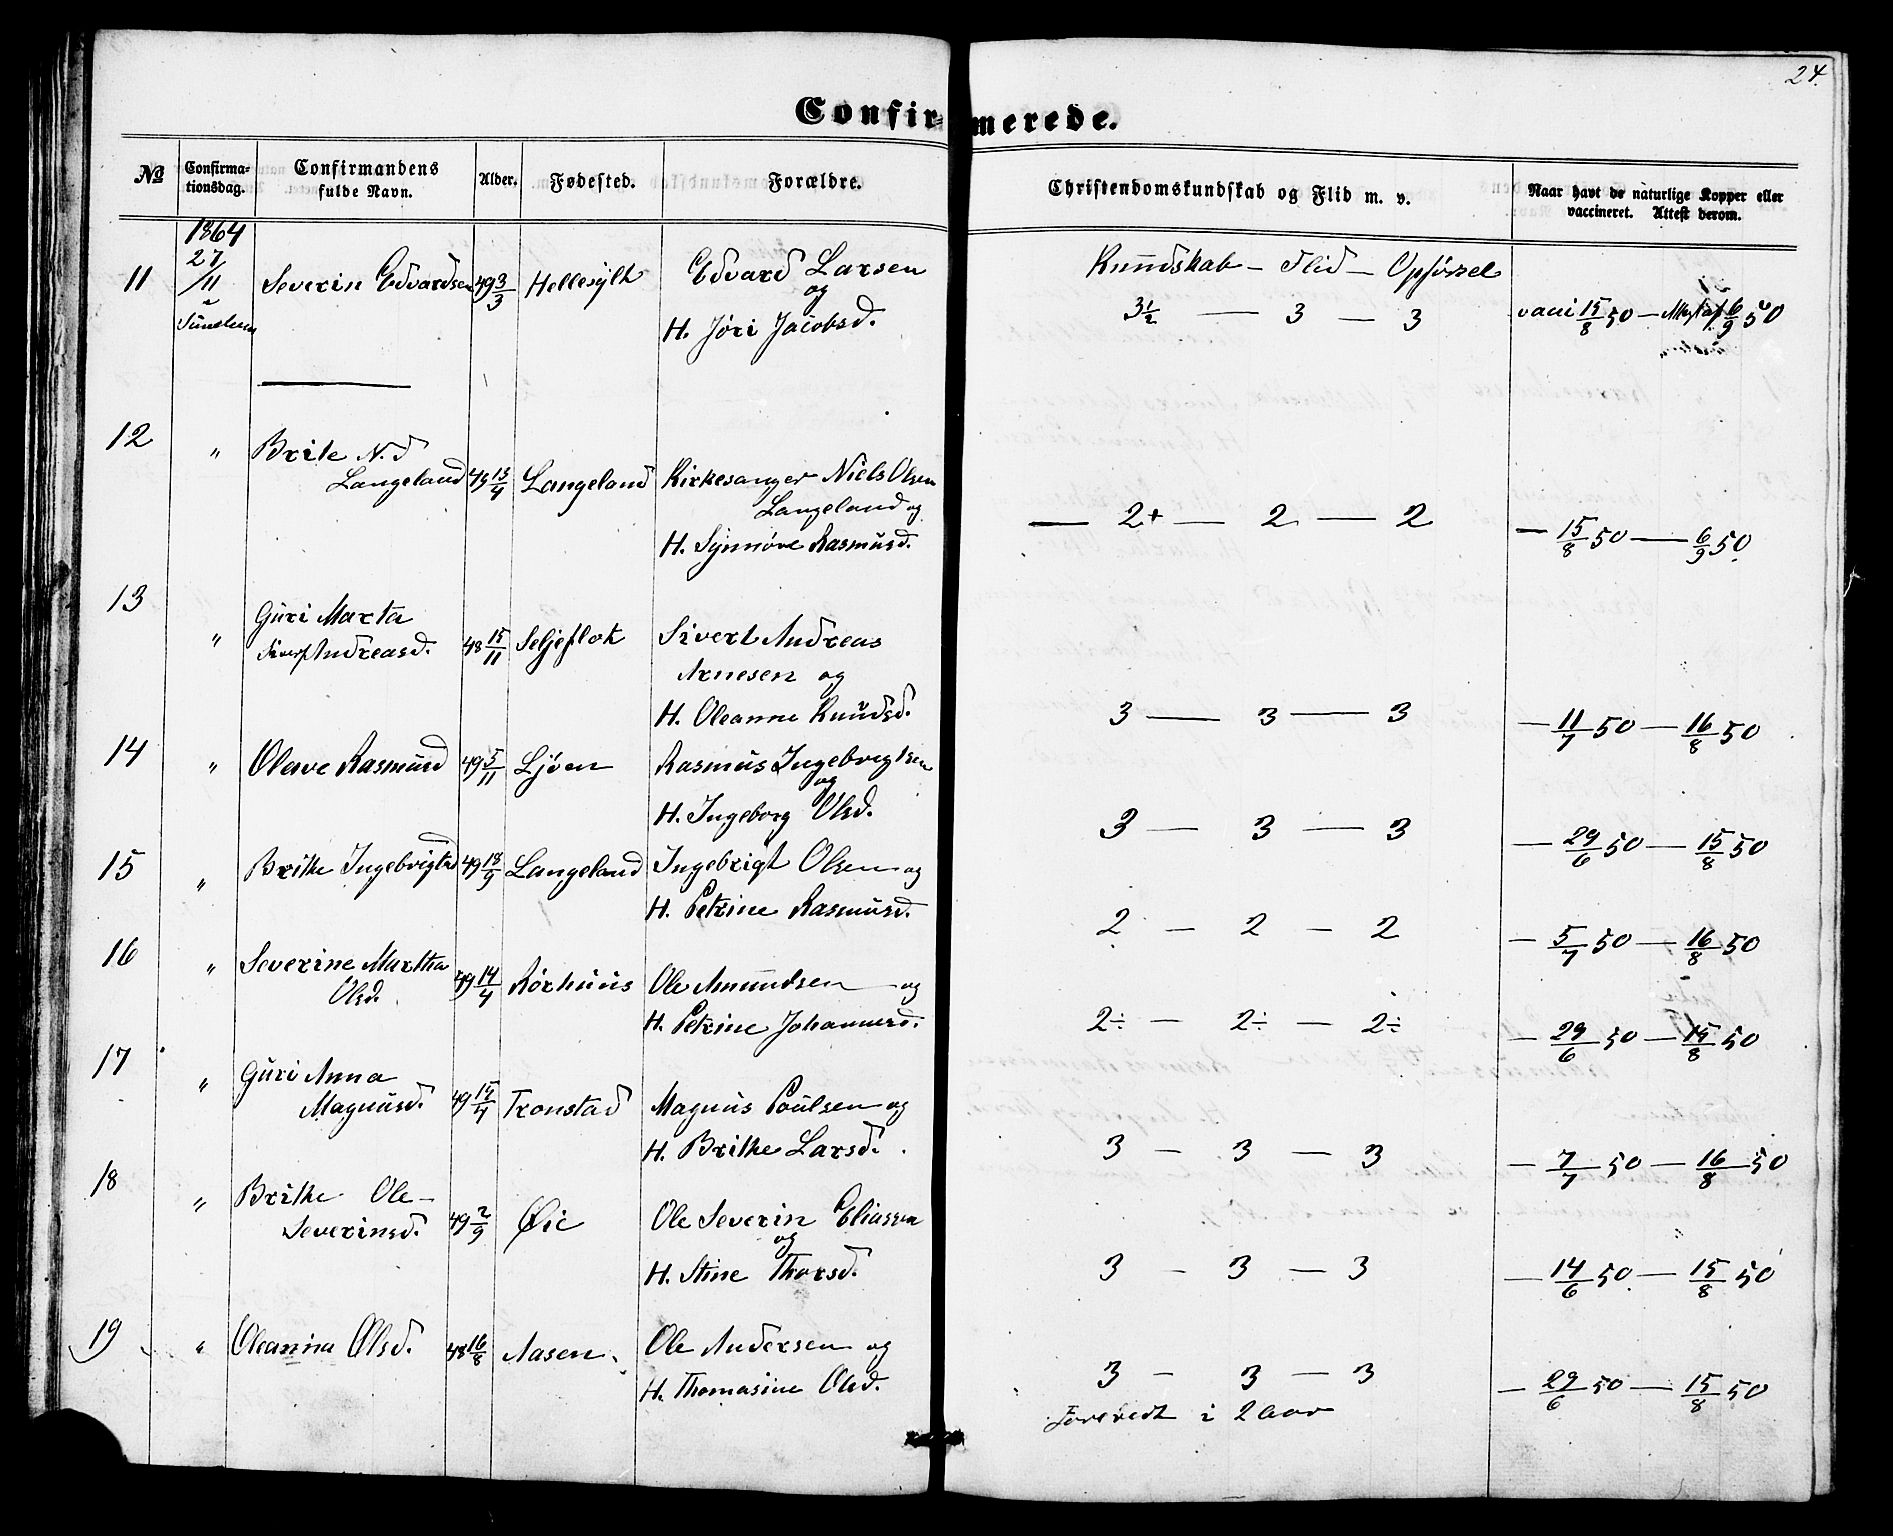 24.
Confir- merede.
No Confirma-tionsdag. Confirmandens fulde Navn. Alder. Fødested. Forældre. Christendomskundskab og Flid m. v. Naar havt de naturlige Kopper eller vaccineret. Attest derom.
1864
27/11
i
Kundskab – Flid – Opførsel
11 Severin Edvardsen 49 3/3 Hellesylt Edvard Larsen
og
H. Jøri Jacobsd.
3½ — 3 — 3 vacci 15/8 50 — 6/9 50
12 " Brite N.d
Langeland 49 15/4 Langeland Kirkesanger Niels Olsen
Langeland og
H. Synnøve Rasmusd.
— 2+ — 2 — 2 — 15/8 50 — 6/9 50.
13 " Guri Marta
Sivert Andreasd. 48 15/11 Seljeflot Sivert Andreas
Arnesen og
H. Oleanne Knudsd.
3 — 3 — 3 — 11/7 50 — 16/8 50
14 " Olave Rasmusd 49 5/11 Ljøen Rasmus Ingebrigtsen
og
H. Ingeborg Olsd.
3 — 3 — 3 — 29/6 50 — 15/8 50
15 " Brithe Ingebrigtsd 49 18/9 Langeland Ingebrigt Olsen og
H. Petrine Rasmusd.
2 — 2 — 2 — 5/7 50 — 16/8 50
16 " Severine Martha
Olsd. 49 14/4 Rørhuus Ole Amundsen og
H. Petrine Johannesd.
2÷ — 2÷ — 2÷ — 29/6 50 — 15/8 50
17 " Guri Anna
Magnusd. 49 15/4 Tronstad Magnus Poulsen og
H. Brithe Larsd.
3 — 3 — 3 — 7/7 50 — 16/8 50
18 " Brithe Ole-
Severinsd. 49 2/9 Øie Ole Severin Eliassen
og
H. Stine Thorsd.
3 — 3 — 3 — 14/6 50 — 15/8 50
19 " Oleanna Olsd. 48 16/8 Aasen Ole Andersen og
H. Thomasine Olsd.
3 — 3 — 3 — 29/6 50 — 15/8 50
i 2 Aar